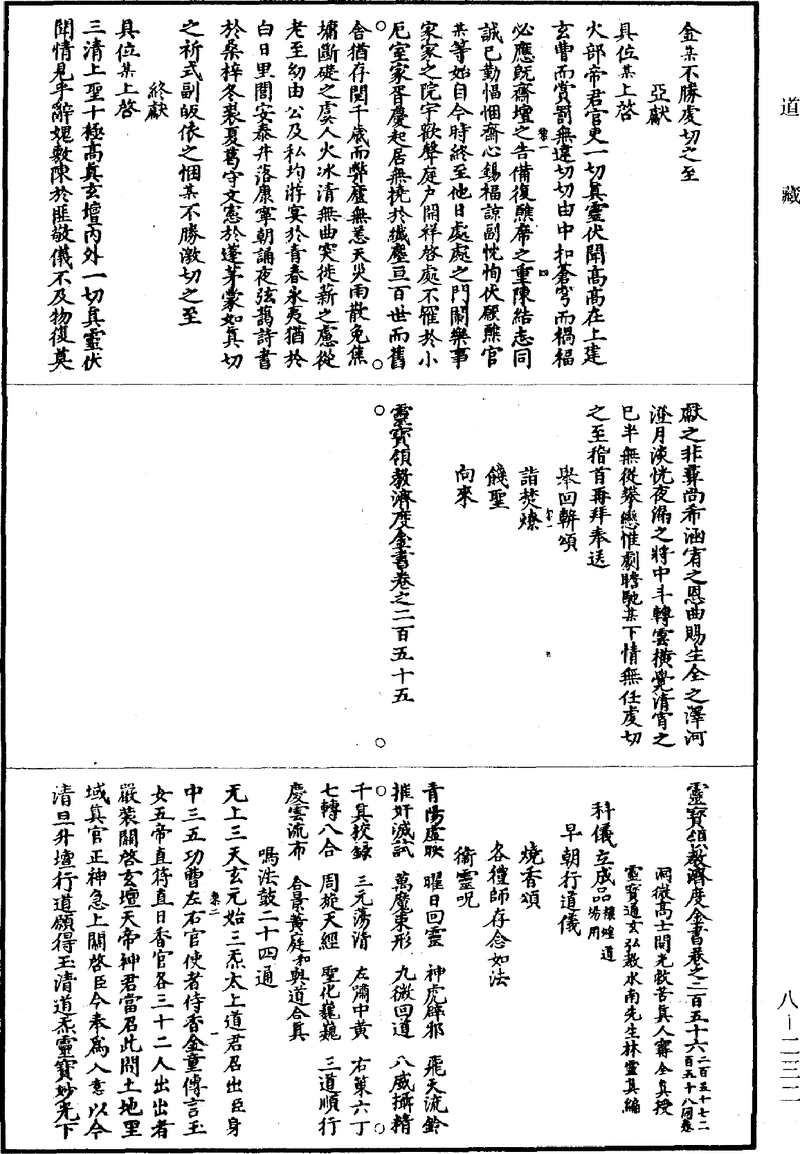 道藏
金某不勝虔切之至
亞獻
具位某上啓
火部帝君官吏一切真靈伏聞高高在上建
玄曹而賞罰無違切切由中扣蒼穹而禍福
必應既齋壇之告備復醮席之重陳結志同
誠已勤悃悃齋心錫福諒副忱恂伏願醮官
某等始自今時終至他日處處之門闌樂事
家家之院宇歡聲庭戶開祥啓處不罹於小
厄室家胥慶起居無撓於纖塵亘百世而舊
舍猶存閱千歲而弊廬無恙天災雨散免焦
墉斷礎之虞人火冰清無曲突徙薪之慮從
老至幼由公及私均游宴於青春永夷猶於
白日里閭安泰井落康寧朝誦夜弦藹詩書
於桑梓冬裘夏葛守文憲於蓬茅蒙如真切
之祈式副皈依之悃某不勝激切之至
終獻
具位某上啓
三清上聖十極高真玄壇內外一切真靈伏
聞情見乎辭媿敷陳於匪敬儀不及物復奠
獻之非彝尚希涵宥之恩曲賜生全之澤河
澄月淡恍夜漏之將中斗轉雲橫覺清宵之
已半無從攀戀惟劇瞻馳某下情無任虔切
之至稽首再拜奉送
舉回軿頌
詣焚燎
餞聖
向來
靈寶領教濟度金書卷之二百五十五
靈寶領教濟度金書卷之二百五十六 二百五十七二百五十八同卷
洞微高士開光救苦真人甯全真授
靈寶通玄弘教水南先生林靈真編
科儀立成品 禳蝗道場用
早朝行道儀
燒香頌
各禮師存念如法
衛靈呪
青陽虛映 曜日回靈 神虎辟邪 飛天流鈴
摧奸滅試 萬魔束形 九微回道 八威攝精
千真校錄 三元蕩清 左嘯中黃 右策六丁
七轉八合 周旋天經 聖化巍巍 三道順行
慶雲流布 合景黃庭 和與道合真
鳴法鼓二十四通
无上三天玄元始三炁太上道君召出臣身
中三五功曹左右官使者侍香金童傳言玉
女五帝直符直日香官各三十二人出出者
嚴裝關啓玄壇天帝神君當召此間土地里
域真官正神急上關啓臣今奉為入意以今
清旦升壇行道願得玉清道炁靈寶妙光下
八－二三二